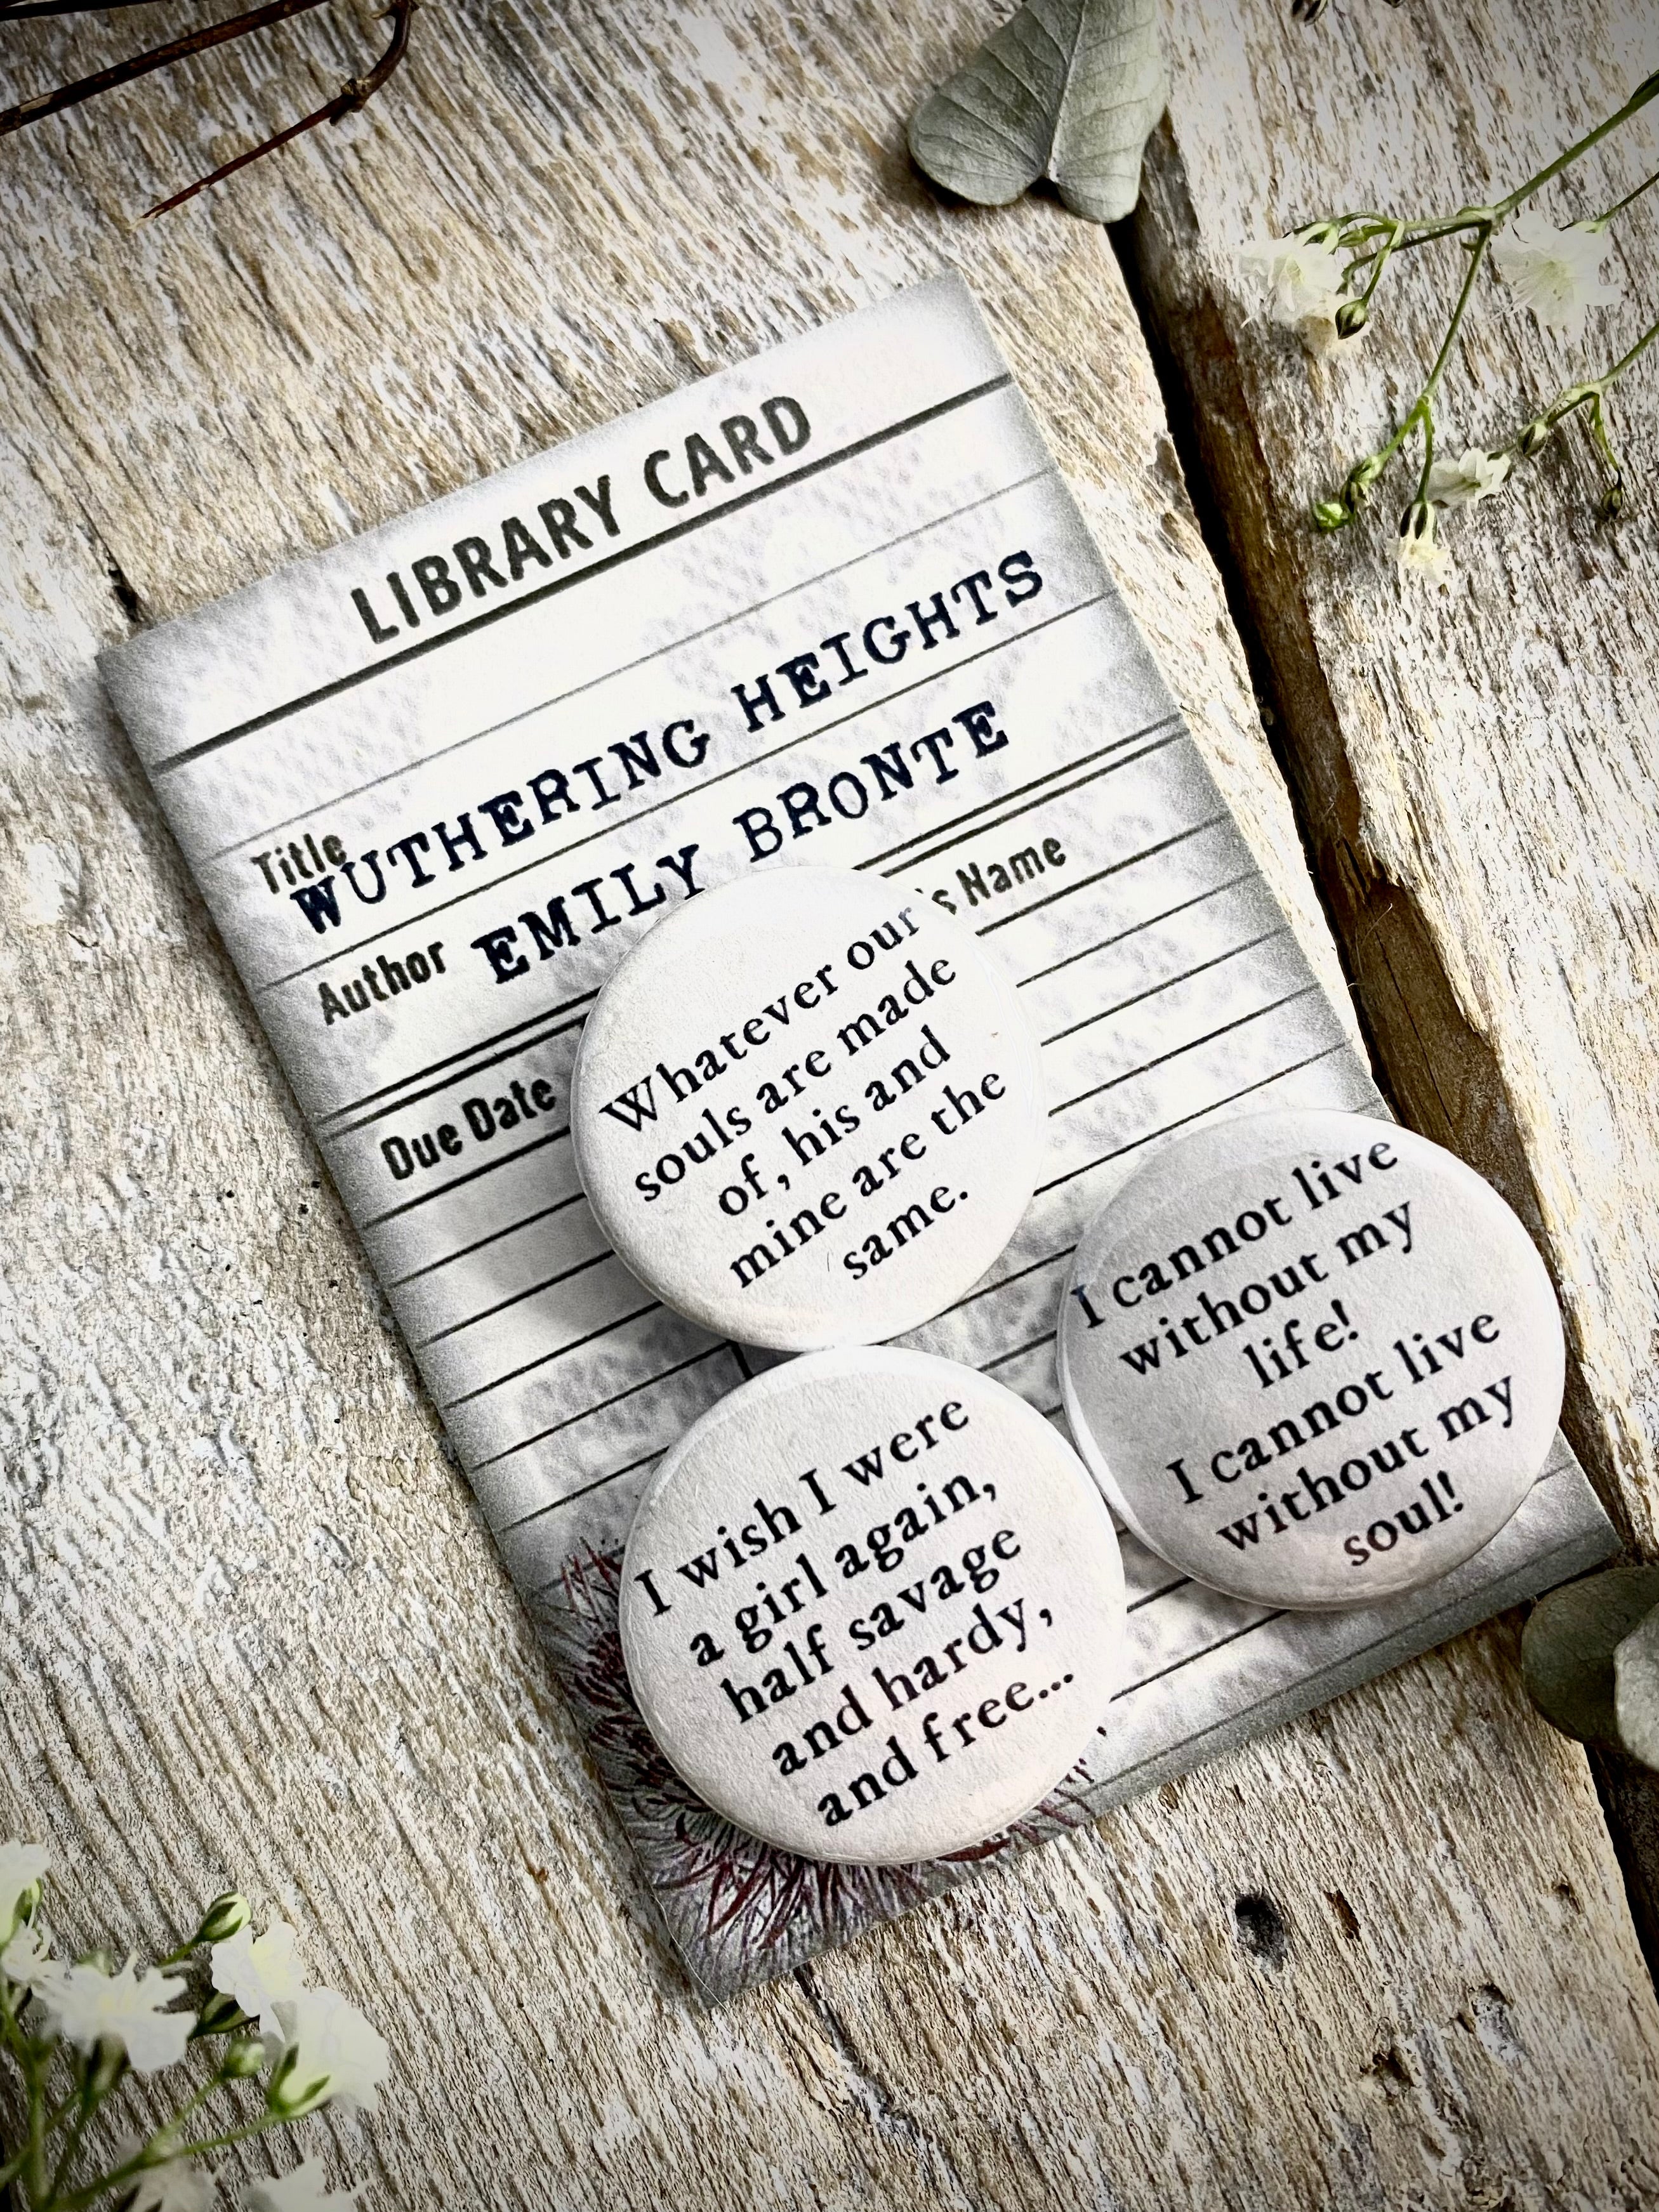 LIBRARY CARD
Title
WUTHERING HEIGHTS
Author EMILY BRONTE
Due Date
's Name
Whatever our
souls are made
of, his and
mine are the
same.
I cannot live
without my
life!
I cannot live
without my
soul!
I wish I were
a girl again,
half savage
and hardy,
and free...